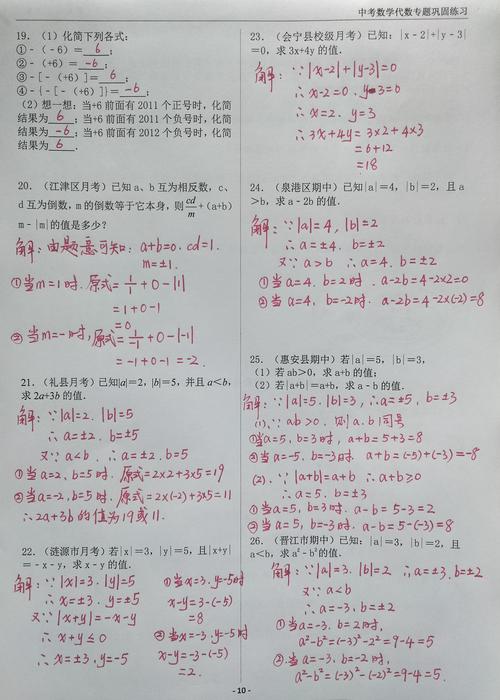 中考数学代数专题巩固练习
19．（1）化简下列各式：
①－（－6）＝ 6 ；
②－（+6）＝ －6 ；
③－[－（+6）]＝ 6 ；
④－{－[－（+6）]}＝ －6 ；
（2）想一想：当+6前面有2011个正号时，化简
结果为 6 ；当+6前面有2011个负号时，化简
结果为 －6 ；当+6前面有2012个负号时，化简
结果为 6 ．
20．（江津区月考）已知a、b互为相反数，c、
d互为倒数，m的倒数等于它本身，则cd/m+（a+b）
m－|m|的值是多少？
解：由题意可知：a+b=0. cd=1.
m=±1.
①当m=1时. 原式=1/1+0-|1|
=1+0-1
=0
②当m=-1时，原式=1/-1+0-|-1|
=-1+0-1=-2.
21．（礼县月考）已知|a|=2，|b|=5，并且a<b，
求2a+3b的值．
解：∵|a|=2. |b|=5
∴a=±2. b=±5
又∵a<b ∴a=±2. b=5
①当a=2、b=5时. 原式=2×2+3×5=19
②当a=-2，b=5时. 原式=2×(-2)+3×5=11
∴2a+3b的值为19或11.
22．（涟源市月考）若|x|=3，|y|=5，且|x+y|
=－x－y，求x－y的值．
解：∵|x|=3. |y|=5
∴x=±3. y=±5
又∵|x+y|=-x-y
∴x+y≤0
∴x=±3，y=-5
①当x=3. y=-5时
x-y=3-(-5)
=8
②当x=-3. y=-5时
x-y=-3-(-5)
=2.
23．（会宁县校级月考）已知：|x－2|+|y－3|
=0，求3x+4y的值．
解：∵|x-2|+|y-3|=0
∴x-2=0. y-3=0
∴x=2. y=3
∴3x+4y=3×2+4×3
=6+12
=18
24．（泉港区期中）已知|a|=4，|b|=2，且a
>b，求a－2b的值．
解：∵|a|=4，|b|=2
∴a=±4. b=±2
又∵a>b ∴a=4. b=±2
①当a=4. b=2时. a-2b=4-2×2=0
②当a=4，b=-2时. a-2b=4-2×(-2)=8
25．（惠安县期中）若|a|=5，|b|=3，
（1）若ab>0，求a+b的值；
（2）若|a+b|=a+b，求a－b的值．
解：∵|a|=5. |b|=3，∴a=±5，b=±3
(1). ∵ab>0. 则a.b同号
①当a=5，b=3时，a+b=5+3=8
②当a=-5. b=-3时. a+b=(-5)+(-3)=-8
(2). ∵|a+b|=a+b ∴a+b≥0
∴a=5. b=±3
①当a=5，b=3时. a-b=5-3=2
②当a=5，b=-3时. a-b=5-(-3)=8
26．（晋江市期中）已知：|a|=3，|b|=2，且
a<b，求a²－b²的值．
解：∵|a|=3. |b|=2 ∴a=±3. b=±2
又∵a<b
∴a=-3. b=±2
①当a=-3. b=2时，
a²-b²=(-3)²-2²=9-4=5
②当a=-3. b=-2时，
a²-b²=(-3)²-(-2)²=9-4=5.
- 10 -